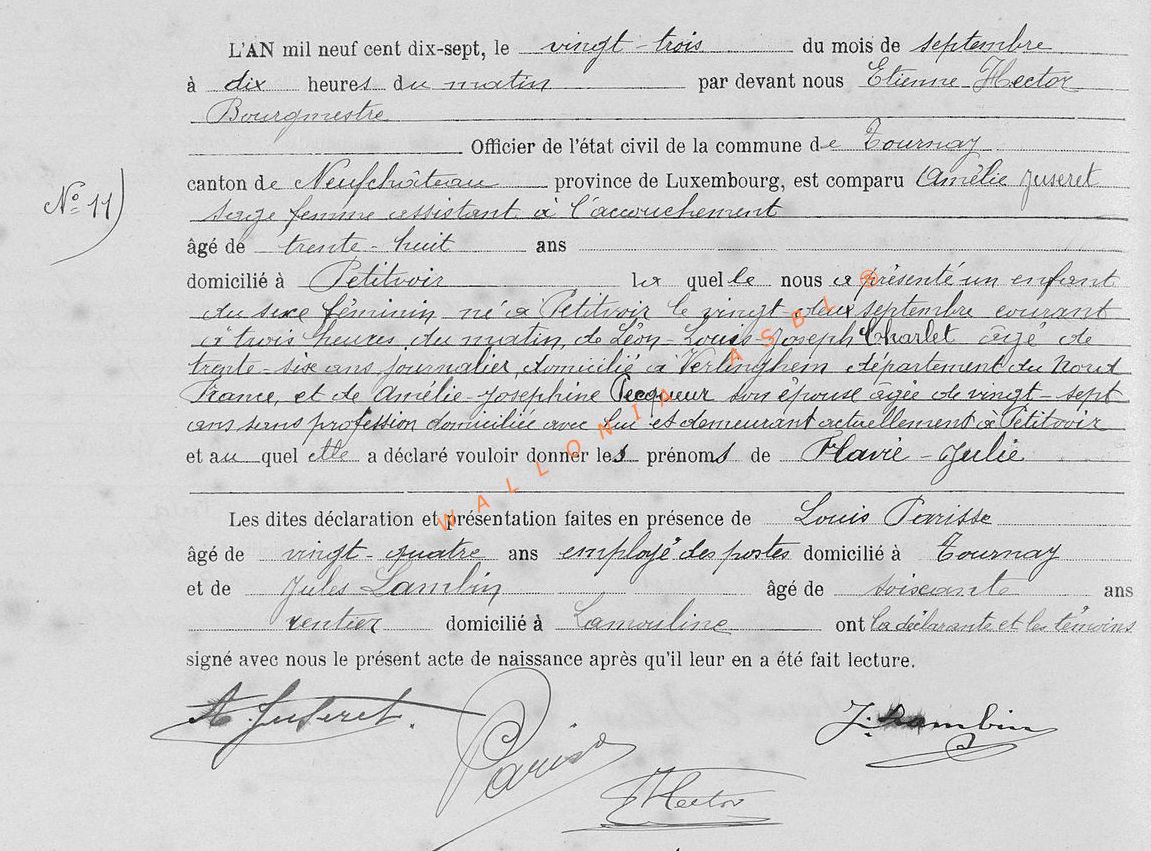 L'AN mil neuf cent dix-sept, le vingt-trois du mois de septembre
à dix heures du matin par devant nous Etienne Hector
Bourgmestre
Officier de l'état civil de la commune de Tournay
canton de Neufchâteau province de Luxembourg, est comparu Amélie Juseret
sage femme assistant à l'accouchement
âgé de trente-huit ans
N° 11)
domicilié à Petitvoir la quelle nous a présenté un enfant
du sexe féminin né à Petitvoir le vingt-deux septembre courant
à trois heures du matin, de Léon-Louis-Joseph Charlet âgé de
trente-six ans, journalier, domicilié à Verlinghem département du Nord
France, et de Amélie-Josephine Pecqueur son épouse âgée de vingt-sept
ans sans profession domiciliée avec lui et demeurant actuellement à Petitvoir
et au quel elle a déclaré vouloir donner les prénoms de Flavie-Julie
WALLONIA ASBL ®
Les dites déclaration et présentation faites en présence de Louis Parisse
âgé de vingt-quatre ans employé des postes domicilié à Tournay
et de Jules Lambin âgé de soixante ans
rentier domicilié à Lamouline ont la déclarante et les témoins
signé avec nous le présent acte de naissance après qu'il leur en a été fait lecture.
A. Juseret.
Parisse
J. Lambin
E Hector